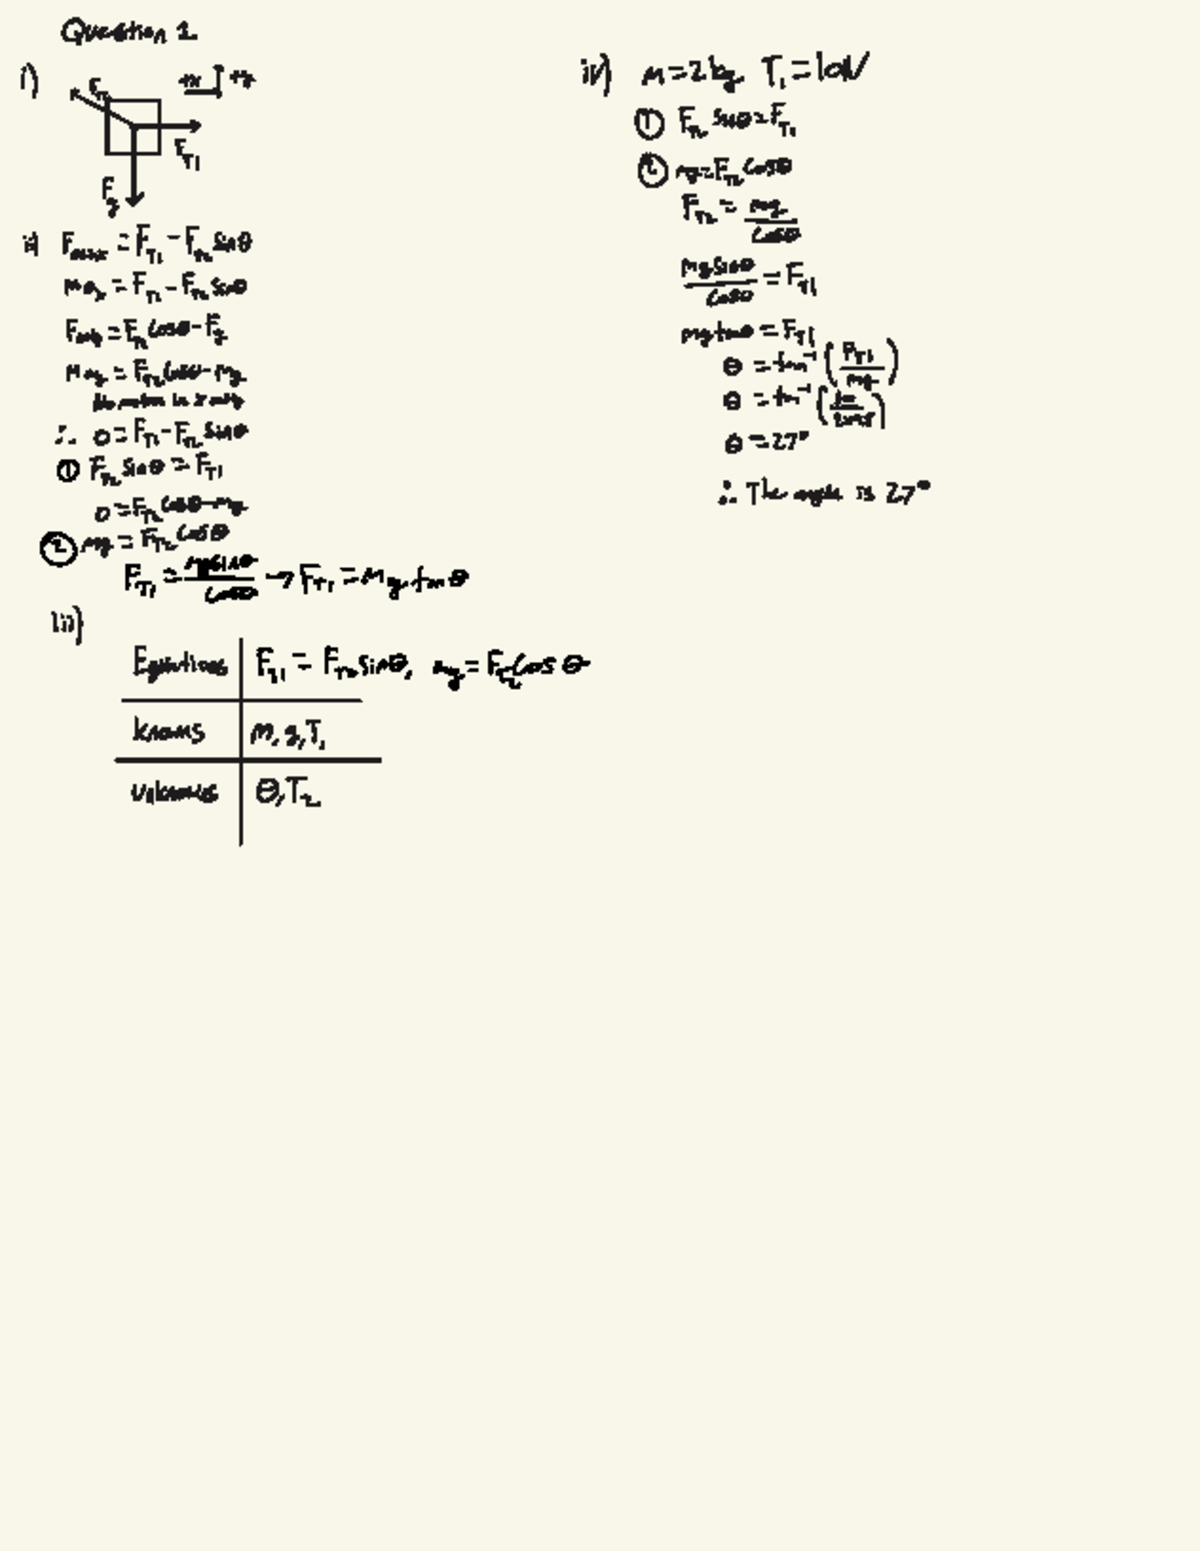 Question 1.
i)
F_T2
+x +y
F_T1
F_g
ii) F_netx = F_T1 - F_T2 sinθ
ma_x = F_T1 - F_T2 sinθ
F_nety = F_T2 cosθ - F_g
ma_y = F_T2 cosθ - mg
No motion in x or y
∴ 0 = F_T1 - F_T2 sinθ
① F_T2 sinθ = F_T1
0 = F_T2 cosθ - mg
② mg = F_T2 cosθ
F_T1 = mgsinθ/cosθ → F_T1 = mg tanθ
iii)
Equations F_T1 = F_T2 sinθ, mg = F_T2 cosθ
knowns m, g, T_1
unknowns θ, T_2
iv) m = 2kg T_1 = 10N
① F_T2 sinθ = F_T1
② mg = F_T2 cosθ
F_T2 = mg/cosθ
mgsinθ/cosθ = F_T1
mgtanθ = F_T1
θ = tan⁻¹(F_T1/mg)
θ = tan⁻¹
θ = 27°
∴ The angle is 27°